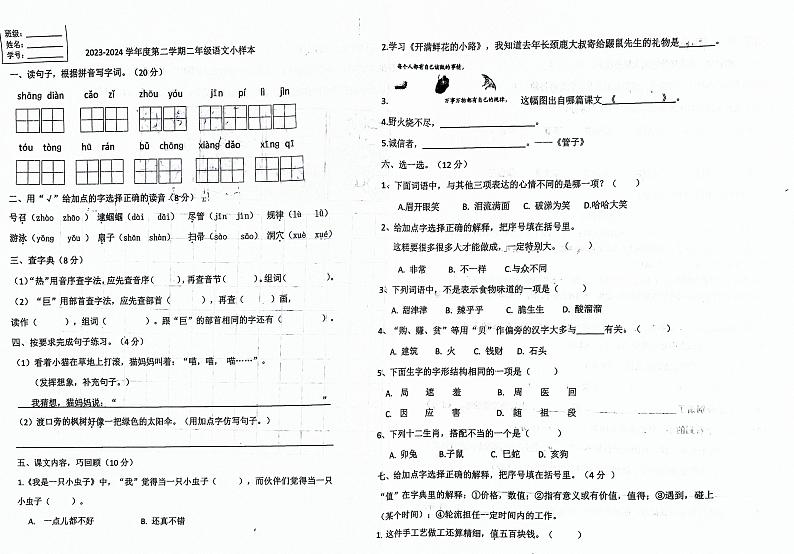 班级:
姓名:
学号:
2023-2024 学年度第二学期二年级语文小样本
一、读句子，根据拼音写字词。（20 分）
shāng diàn cǎo zǐ zhōu yóu jīn pí lì jìn
tóu tòng hū rán bǔ chōng xiàng dǎo xīng qī
二、用“√”给加点的字选择正确的读音（8 分）
号召（zhào zhāo） 逮蝈蝈（dài dǎi） 尽管（jǐn jìn） 规律（lù lǜ）
游泳（yǒng yǒu） 扇子（shān shàn） 扫帚（sào sǎo） 洞穴（xuè xué）
三、查字典（8 分）
（1）“热”用音序查字法，应先查音序（ ），再查音节（ ）。组词（ ）。
（2）“巨”用部首查字法，应先查部首（ ），再查（ ）画，
读作（ ），组词（ ）。跟“巨”的部首相同的字还有（ ）。
四、按要求完成句子练习。（4 分）
（1）看着小猫在草地上打滚，猫妈妈叫着：“喵，喵， 喵……”。
（发挥想象，补充句子。）
我猜想，猫妈妈说：“ ”
（2）渡口旁的枫树好像一把绿色的太阳伞。（用加点字仿写句子。）
五、课文内容，巧回顾（10 分）
1.《我是一只小虫子》中，“我”觉得当一只小虫子（ ），而伙伴们觉得当一只
小虫子（ ）。
A. 一点儿都不好 B. 还真不错
2.学习《开满鲜花的小路》，我知道去年长颈鹿大叔寄给鼹鼠先生的礼物是 。
每个人都有自己该做的事情，
万事万物都有自己的规律。
3. 这幅图出自哪篇课文《 》。
4.野火烧不尽， 。
5.诚信者， 。——《管子》
六、选一选。（12 分）
1、下面词语中，与其他三项表达的心情不同的是哪一项？（ ）
A.眉开眼笑 B. 泪流满面 C. 破涕为笑 D.哈哈大笑
2、给加点字选择正确的解释，把序号填在括号里。
这桩要很多很多人才能做成，一定特别大。（ ）
A. 非常 B. 不一样 C.与众不同
3、下列词语中，不是表示食物味道的一项是（ ）
A. 甜津津 B. 辣乎乎 C. 脆生生 D. 酸溜溜
4、“购、赚、贫”等用“贝”作偏旁的汉字大多与 有关。（ ）
A. 建筑 B. 火 C. 钱财 D. 石头
5、下面生字的字形结构相同的一项是（ ）
A. 局 递 羞 B. 周 医 回
C. 因 应 害 D. 随 祖 段
6、下列十二生肖，搭配不当的一个是（ ）
A. 卯兔 B.子鼠 C. 巳蛇 D. 亥狗
七、给加点字选择正确的解释，把序号填在括号里。（4 分 ）
“值”在字典里的解释：①价格，数值；②指有意义或有价值，值得；③遇到，碰上
（某个时间）；④轮流担任一定时间内的工作。
1. 这件手工艺做工还算精细，值五百块钱。（ ）